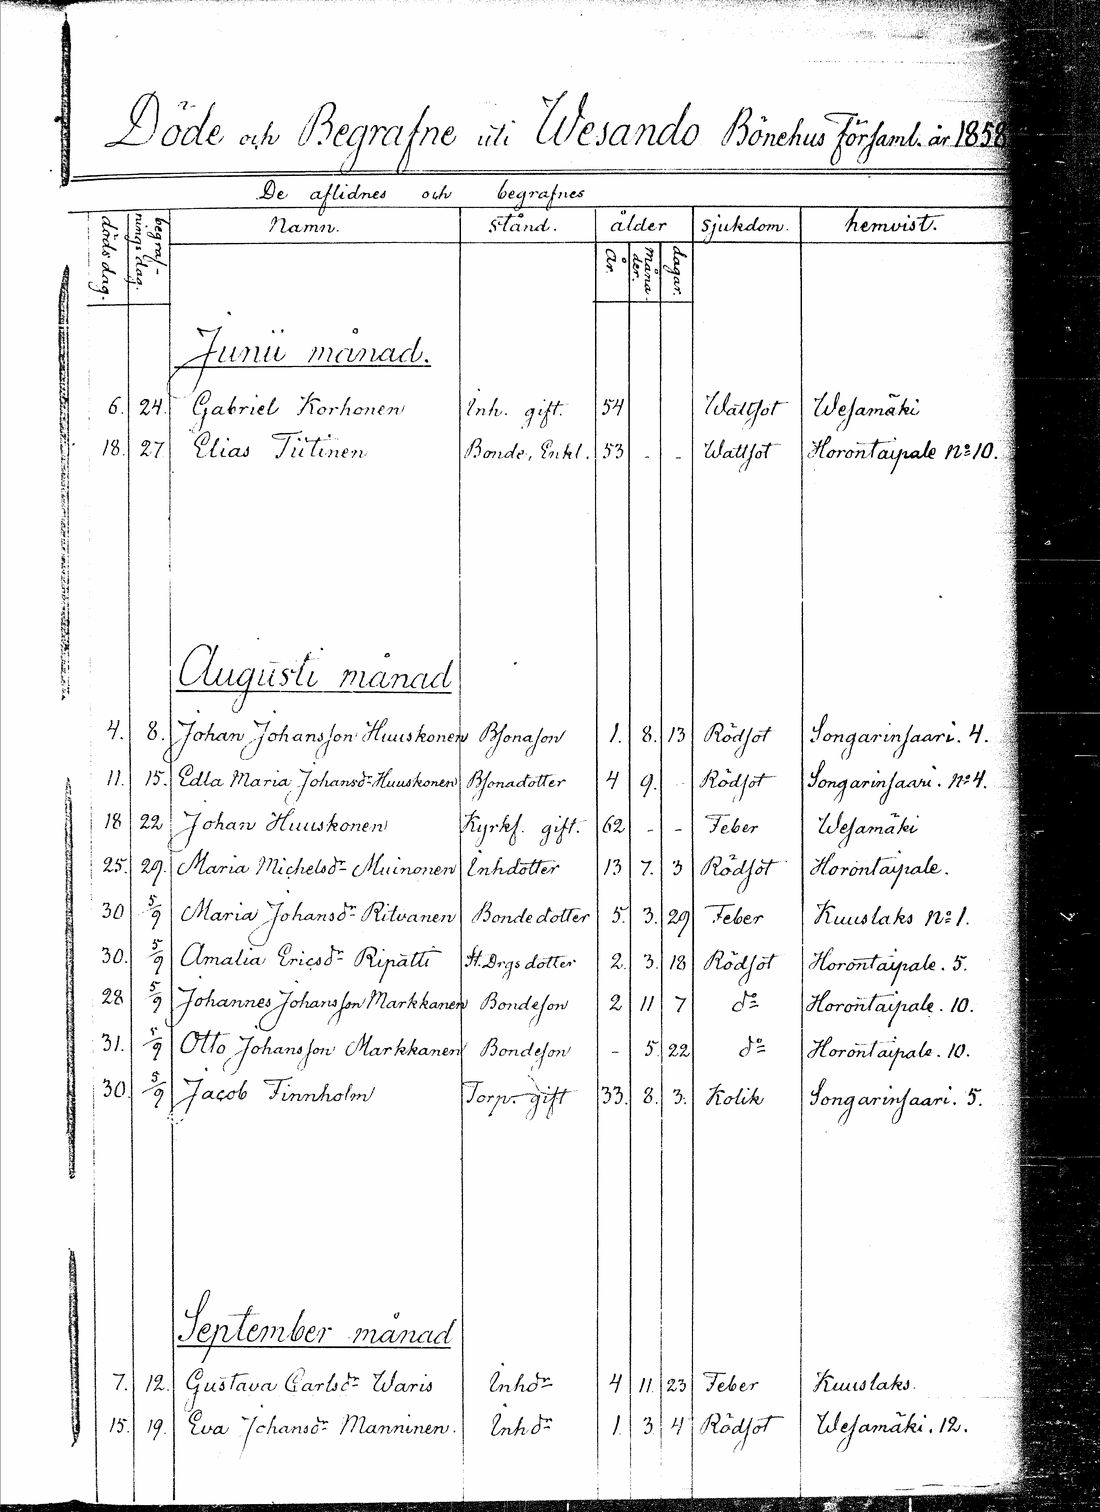 Döde och Begrafne uti Wesando Bönehus församl. år 1858
De aflidnes och begrafnes
dödsdag. begrafningsdag. Namn. stånd. ålder sjukdom. hemvist.
År. månader. dagar.
Junii månad.
6. 24. Gabriel Korhonen Inh. gift. 54 Wattsot Wesamäki
18. 27 Elias Tiitinen Bonde, Enkl. 53 - - Wattsot Horontaipale No 10.
Augusti månad
4. 8. Johan Johansson Huuskonen Bsonason 1. 8. 13 Rödsot Songarinsaari. 4.
11. 15. Edla Maria Johansdr Huuskonen Bsonadotter 4 9. - Rödsot Songarinsaari. No 4.
18 22 Johan Huuskonen Kyrkf. gift. 62 - - Feber Wesamäki
25. 29. Maria Michelsdr Muinonen Inhdotter 13 7. 3 Rödsot Horontaipale.
30 5/9 Maria Johansdr Ritvanen Bondedotter 5. 3. 29 Feber Kuuslaks No 1.
30. 5/9 Amalia Ericsdr Ripatti St. Drgs dotter 2. 3. 18 Rödsot Horontaipale. 5.
28 5/9 Johannes Johansson Markkanen Bondeson 2 11 7 do Horontaipale. 10.
31. 5/9 Otto Johansson Markkanen Bondeson - 5. 22 do Horontaipale. 10.
30. 5/9 Jacob Finnholm Torp. gift 33. 8. 3. Kolik Songarinsaari. 5.
September månad
7. 12. Gustava Carlsdr Waris Inhdr 4 11. 23 Feber Kuuslaks.
15. 19. Eva Johansdr Manninen. Inhdr 1. 3. 4 Rödsot Wesamäki. 12.